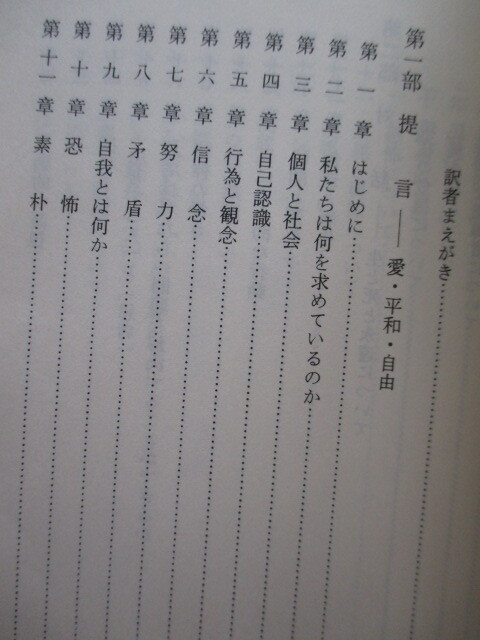 訳者まえがき……………………
第一部 提 言――愛・平和・自由
第一章 はじめに……………………
第二章 私たちは何を求めているのか……………………
第三章 個人と社会……………………
第四章 自己認識……………………
第五章 行為と観念……………………
第六章 信 念……………………
第七章 努 力……………………
第八章 矛 盾……………………
第九章 自我とは何か……………………
第十章 恐 怖……………………
第十一章 素 朴……………………